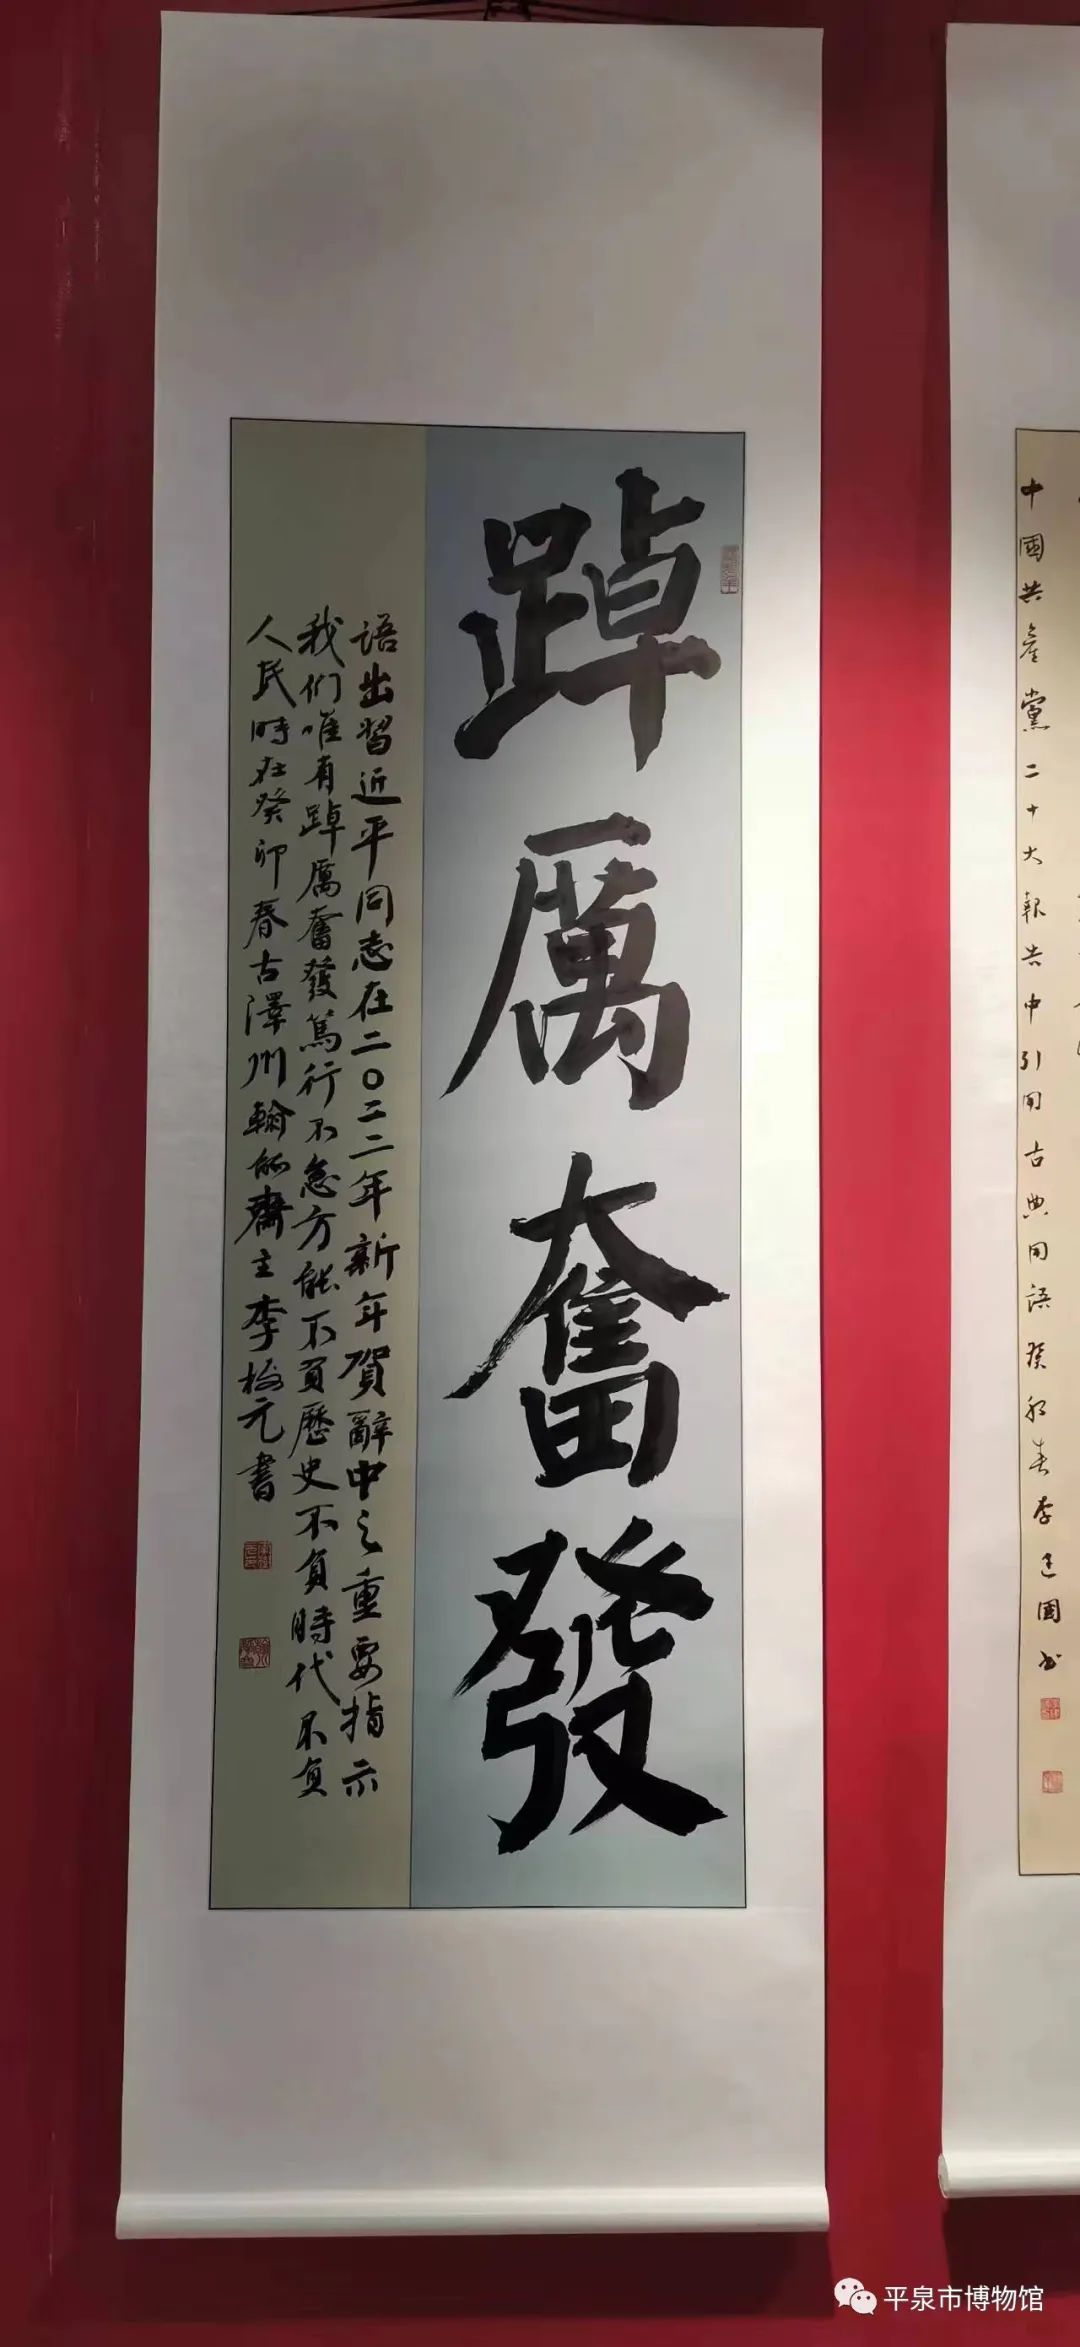 踔厲奮發
語出習近平同志在二〇二二年新年賀辭中之重要指示
我们唯有踔厲奮發篤行不怠方能不負歷史不負時代不負
人民時在癸卯春古澤州翰師齋主李樹元書
中國共產黨二十大報告中引用古典用語癸卯春李建國书
平泉市博物馆